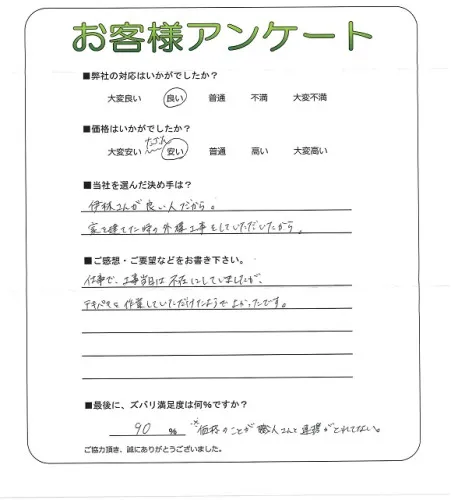 お客様アンケート
■弊社の対応はいかがでしたか？
大変良い 良い 普通 不満 大変不満
■価格はいかがでしたか？
たぶん
大変安い 安い 普通 高い 大変高い
■当社を選んだ決め手は？
伊林さんが良い人だから。
家を建てた時の外構工事をしていただいたから。
■ご感想・ご要望などをお書き下さい。
仕事で、工事当日は不在にしていましたが、
テキパキと作業していただけたようでよかったです。
■最後に、ズバリ満足度は何%ですか？
90 % ※価格のことが職人さんと連携がとれてない。
ご協力頂き、誠にありがとうございました。